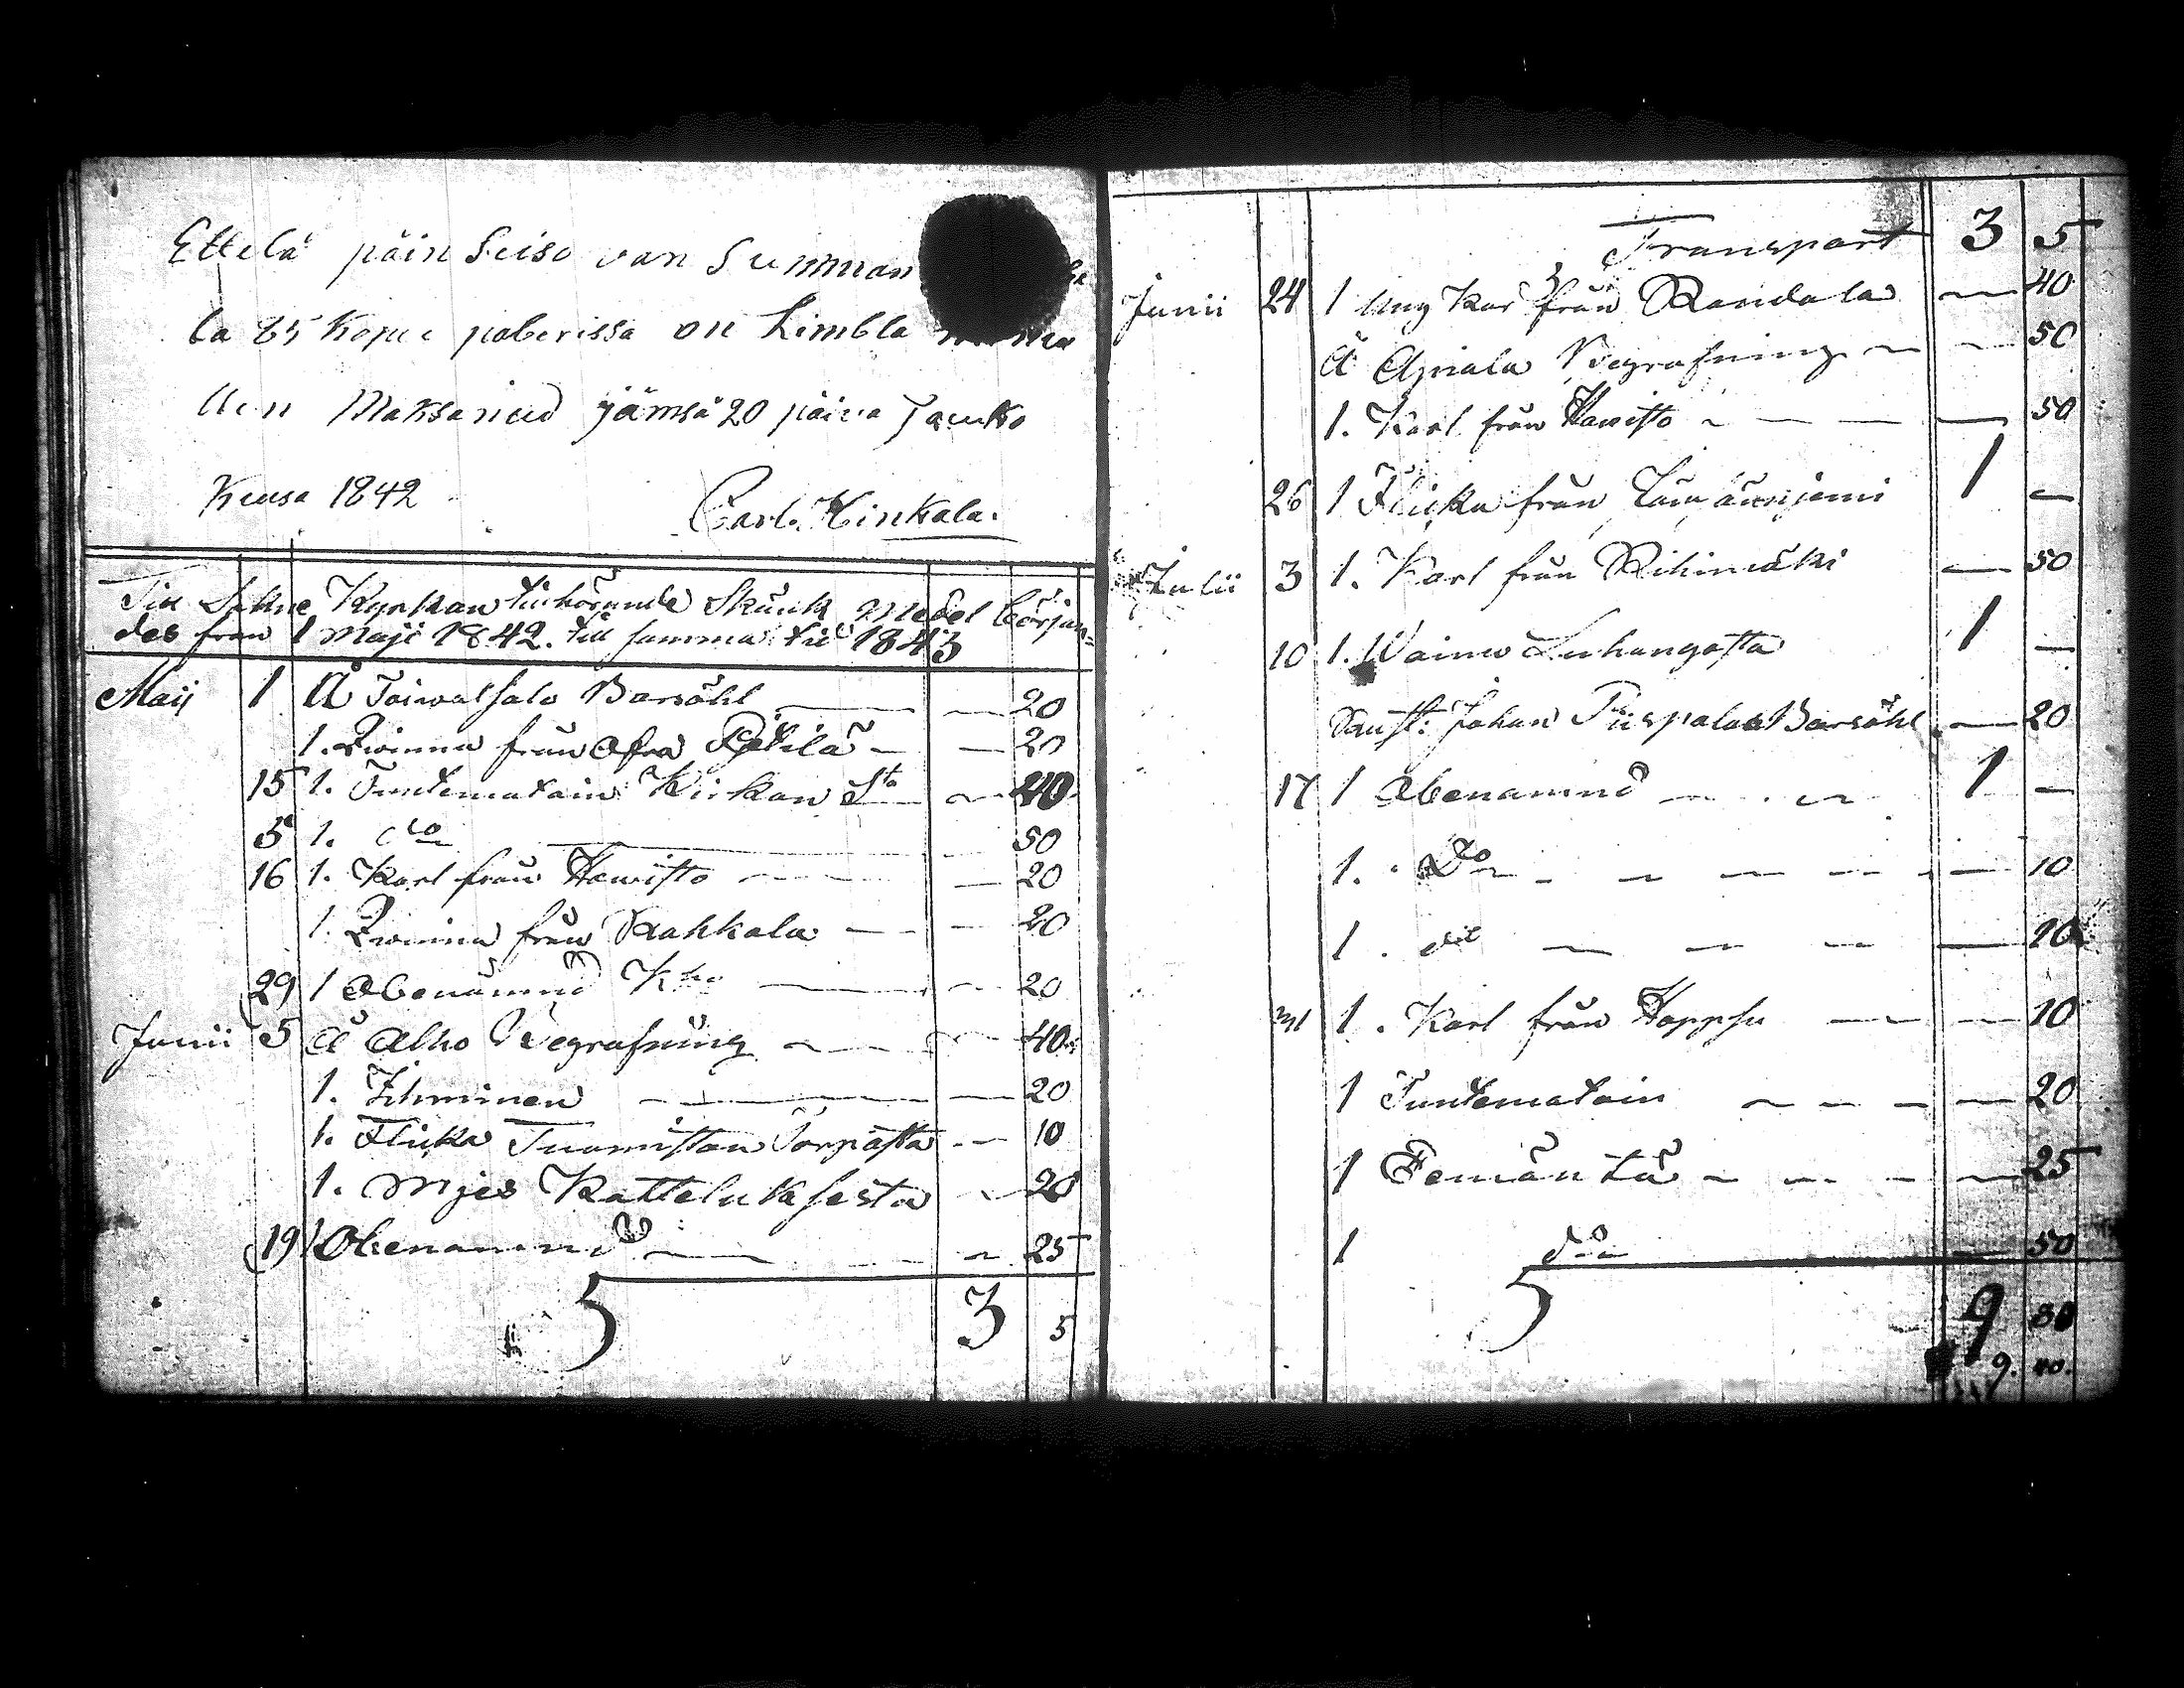 Ettelä päin Seiso van Summan
la 85 Kopec paberissa on Limbla
llen Maksanud jämsä 20 päiva Jouko
Kuusa 1842
Carl. Hinkala.
Till Sokne Kyrkan tillhörande Skänk Medel början=
des från 1 Maji 1842. till samma tid 1843
Maij 1 Å Toiwalsalo Barsöhl — 20
1. Qwinna från Ofra Pätilä — 20
15 1. Tundematoin Kirkan St — 40
5 1. do — 50
16 1. Karl från Hawisto — 20
1. Qwinna från Rahkala — 20
29 1 Obenämnd — 20
Junii 5 Å Alho Begrafning — 40
1. Ihminen — 20
1. Flicka Tuomistan Torpasta — 10
1. Mjes Katteluksesta — 20
19 1 Obenämnd — 25
S 3 5
Transport 3 5
Junii 24 1 Ung Kar från Randala — 40
Å Ajniala Begrafning — 50
1. Karl från Hawisto — 50
26 1 Flicka från 1 —
Julii 3 1. Karl från Rihimäki — 50
10 1. Waimo Luhangasta 1 —
Johan Piispalas Barsöhl — 20
17 1 Obenämnd 1 —
1. Do — 10
1. dit
31 1. Karl från Hoppsu — 10
1 Tundematoin — 20
1 Eemändä — 25
1 do — 50
S 9 30
9. 40.